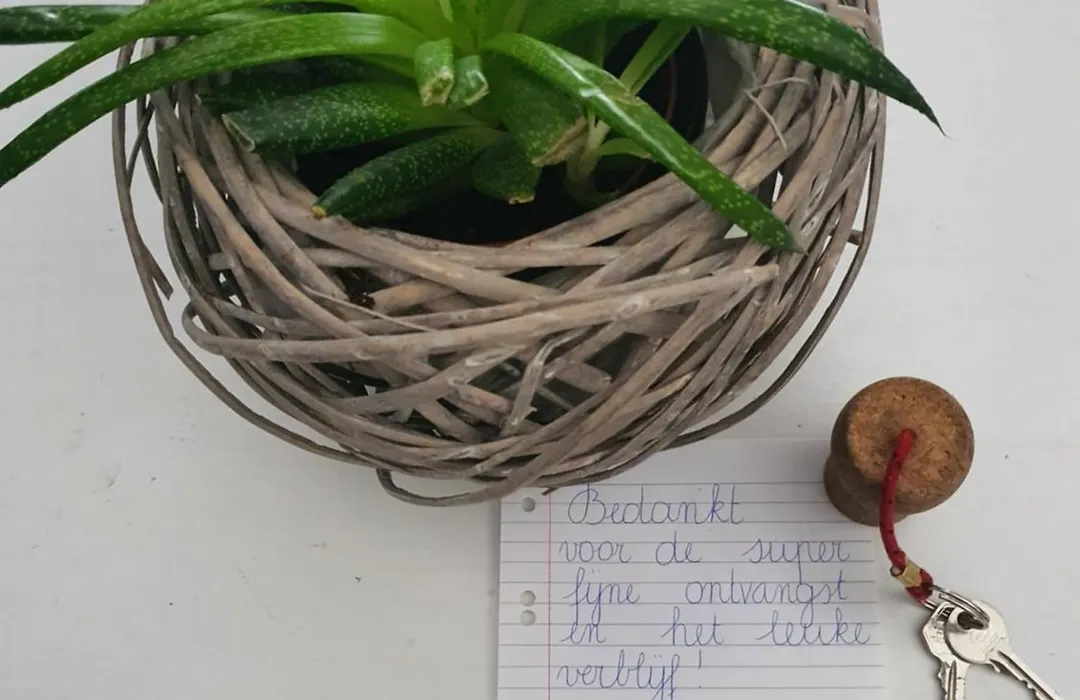 Bedankt
voor de super
fijne ontvangst
en het leuke
verblijf!